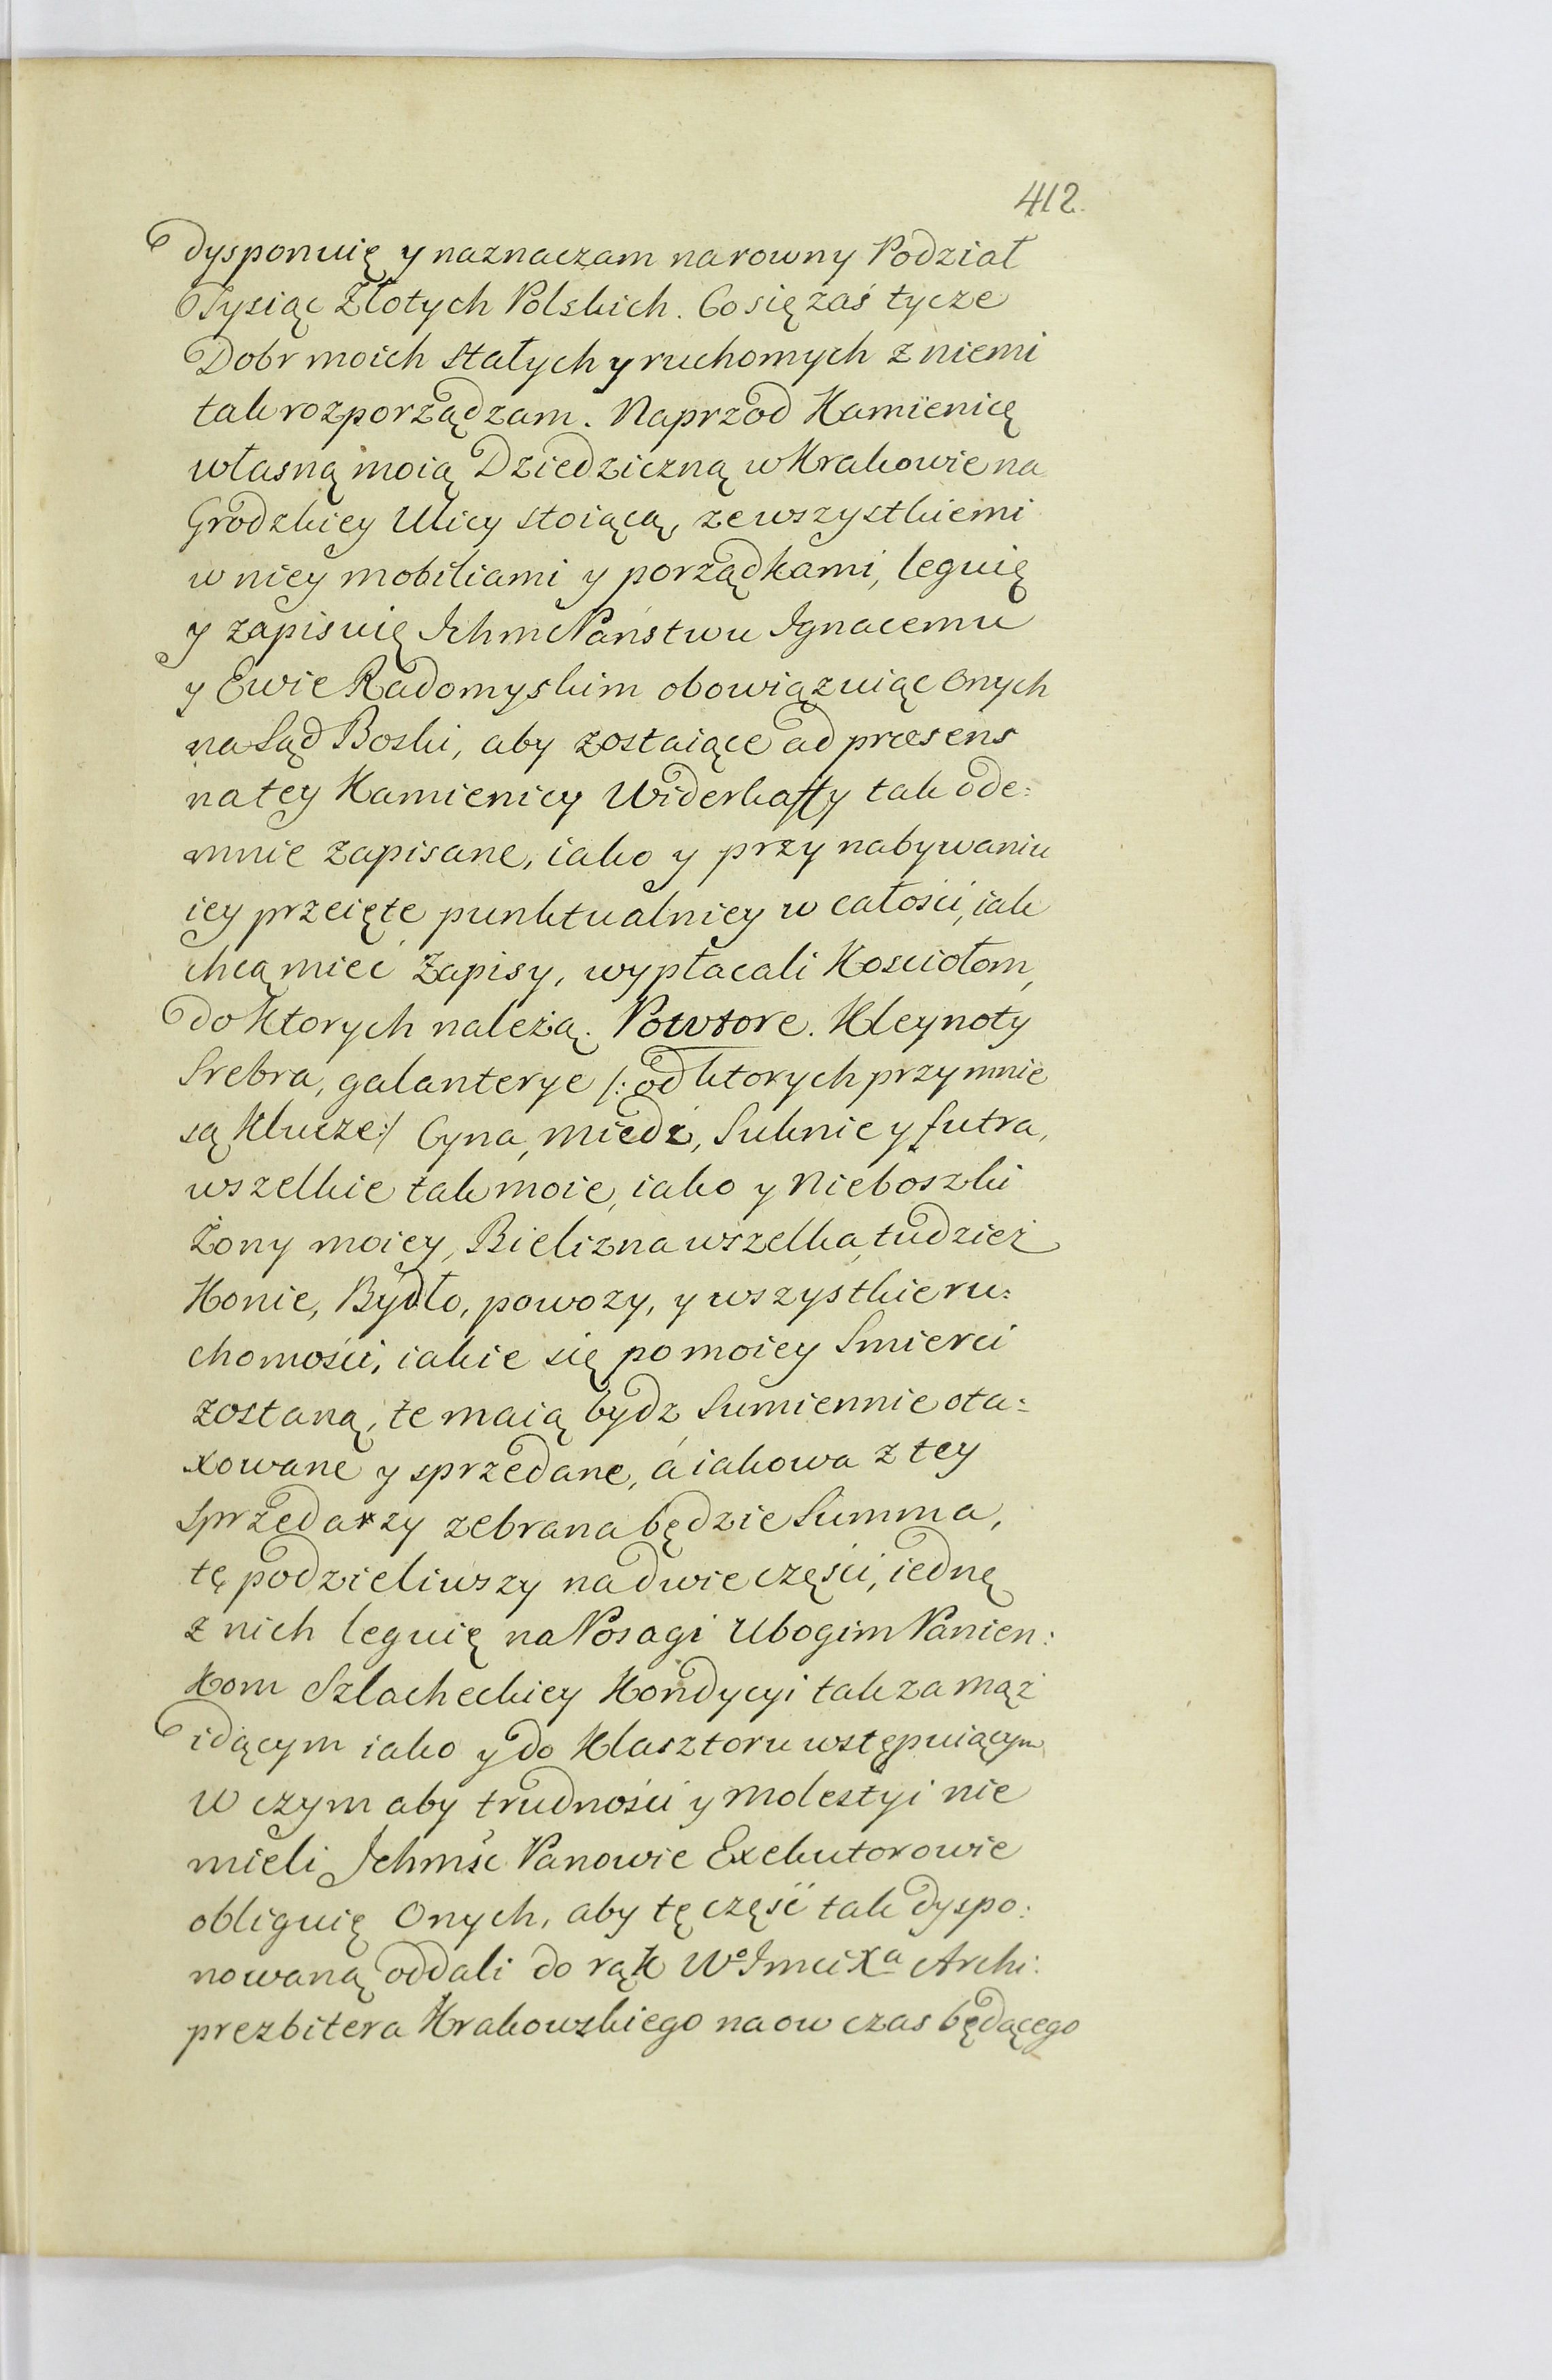 412.
dysponuię y naznaczam na rowny Podział
Tysiąc Złotych Polskich. Co się zaś tycze
Dobr moich stałych y ruchomych z niemi
tak rozporządzam. Naprzod Kamienicę
własną moią Dziedziczną w Krakowie na
Grodzkiey Ulicy stoiącą, ze wszystkiemi
w niey mobiliami y porządkami, leguię
y zapisuię Ichm Państwu Ignacemu
y Ewie Radomyskim obowiązuiąc Onych
na Sąd Boski, aby zostaiące ad præsens
na tey Kamienicy Widerkaffy tak ode:
mnie zapisane, iako y przy nabywaniu
iey przeięte punktualniey w całości, iak
chcą mieć Zapisy, wypłacali Kosciołom,
do Ktorych należą. Powtore. Kleynoty
Srebra, galanterye /: od ktorych przy mnie
są Klucze :/ Cyna, miedź, Suknie y futra,
wszelkie tak moie, iako y Nieboszki
Żony moiey, Bielizna wszelka, tudzież
Konie, Bydło, powozy, y wszystkie ru:
chomości, iakie się po moiey Smierci
zostaną, te maią bydz Sumiennie ota:
xowane y sprzedane, á iakowa z tey
Sprzedarzy zebrana będzie Summa,
tę podzieliwszy na dwie części, iednę
z nich leguię na Posagi Ubogim Panien:
kom Szlacheckiey Kondycyi tak za mąż
idącym iako y do Klasztoru wstępuiącym
W czym aby trudności y molestyi nie
mieli Ichmść Panowie Exekutorowie
obliguię Onych, aby tę część tak dyspo:
nowaną oddali do rąk Wo Imci Xa Archi:
prezbitera Krakowskiego na ow czas będącego